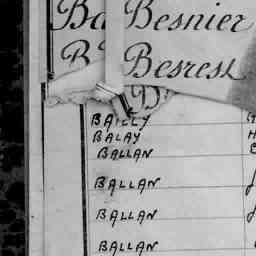 Ba Besnier
B Besrest
B
BAILLY
BALAY
BALLAN
BALLAN
BALLAN
BALLAN